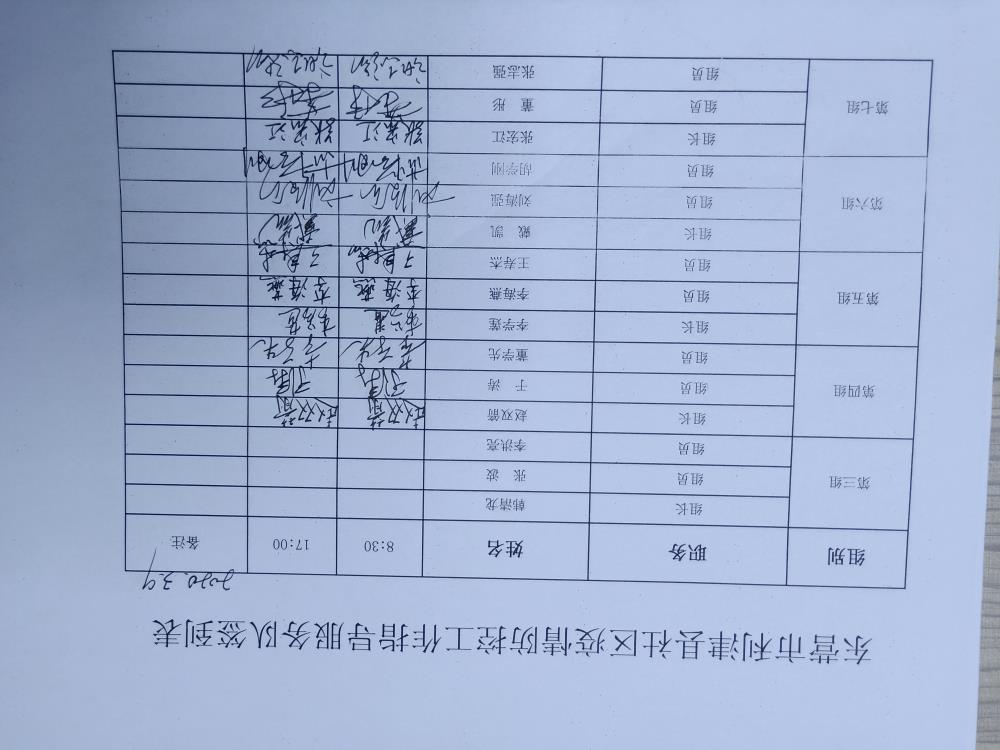 东营市利津县社区疫情防控工作指导服务队签到表
2020.3.9
组别 职务 姓名 8:30 17:00 备注
第三组 组长 韩清龙
组员 张 波
组员 李洪亮
第四组 组长 赵双箭 赵双箭 赵双箭
组员 于 涛
组员 董学先 董学先 董学先
第五组 组长 李学莲 李学莲 李学莲
组员 李海燕 李海燕 李海燕
组员 王寿杰
第六组 组长 戴 凯 戴凯 戴凯
组员 刘海强
组员 胡学刚 胡学刚 胡学刚
第七组 组长 张宏江 张宏江 张宏江
组员 董 彤
组员 张志强